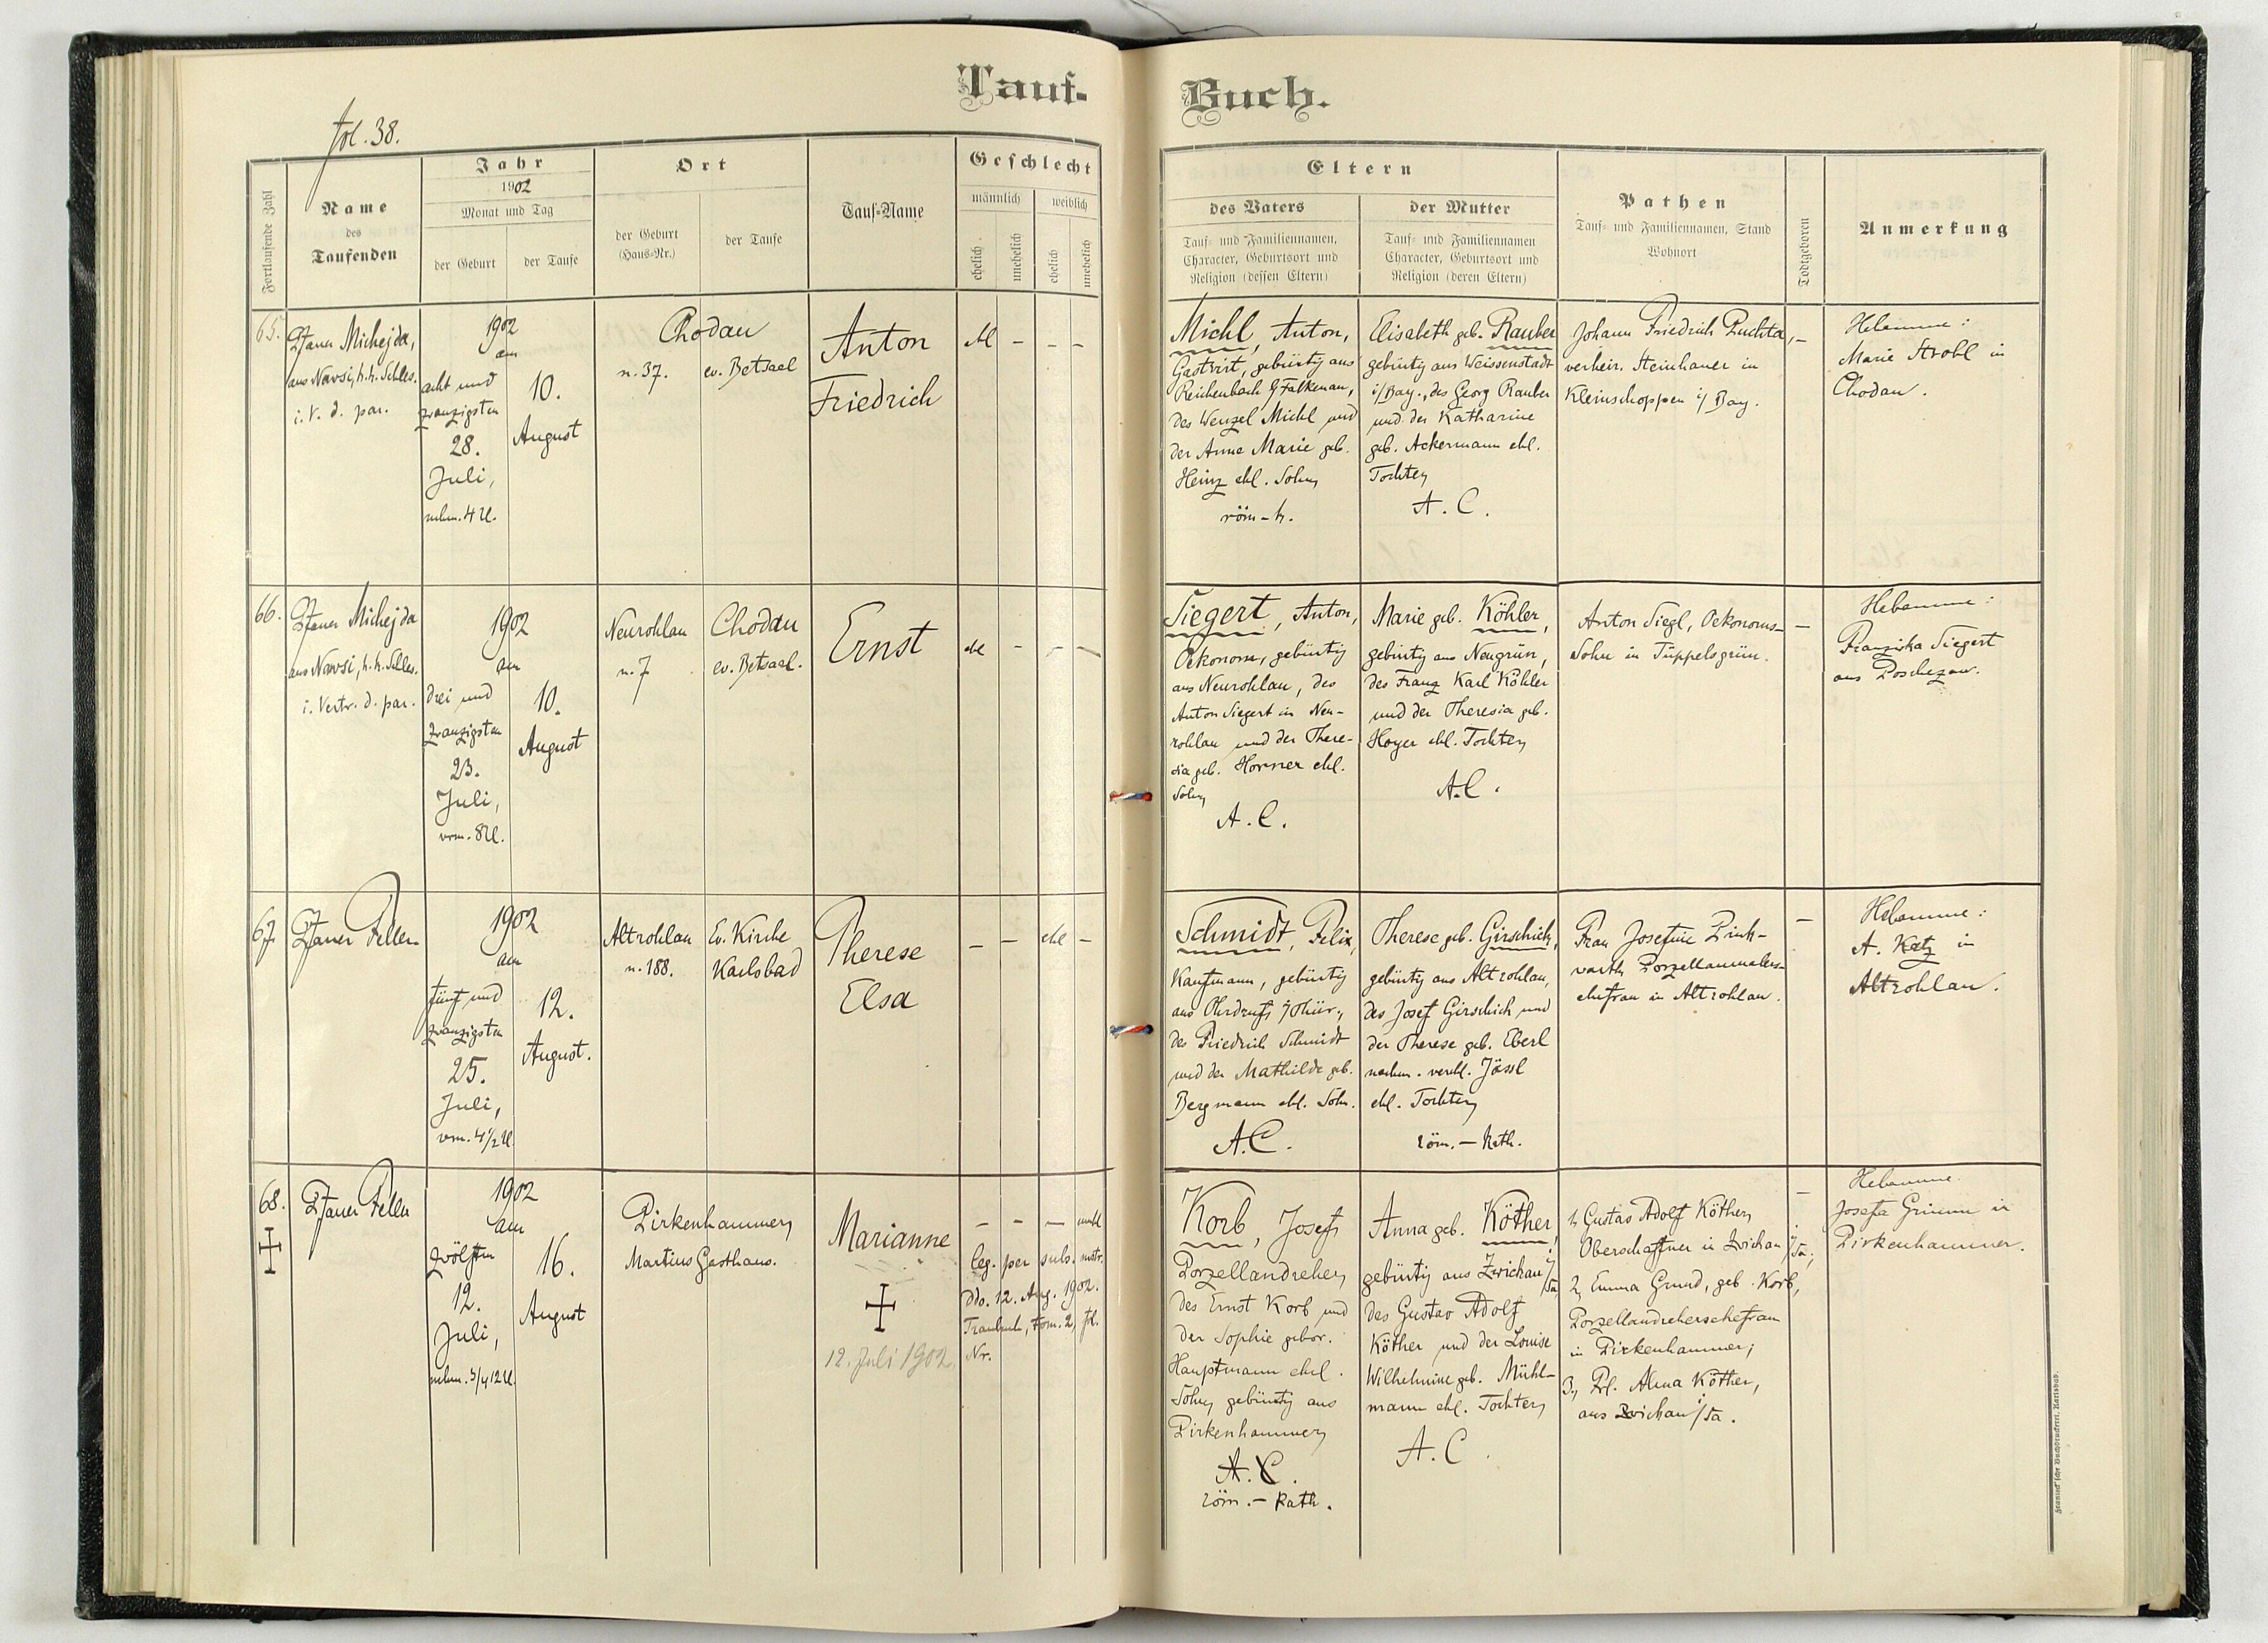 Tauf-
Buch.
fol. 38.
Fortlaufende Zahl
Name
des
Taufenden
Jahr
1902
Monat und Tag
der Geburt
der Taufe
Ort
der Geburt
(Haus-Nr.)
der Taufe
Tauf-Name
Geschlecht
männlich
weiblich
ehelich
unehelich
ehelich
unehelich
Eltern
des Vaters
Tauf- und Familiennamen,
Character, Geburtsort und
Religion (dessen Eltern)
der Mutter
Tauf- und Familiennamen
Character, Geburtsort und
Religion (deren Eltern)
Pathen
Tauf- und Familiennamen, Stand
Wohnort
Todtgeboren
Anmerkung
65.
Pfarrer Michejda,
aus Nawsi, k.k. Schles.
i. V. d. par.
1902
am
acht und
zwanzigsten
28.
Juli,
nchm. 4 U.
10.
August
Chodau
n. 37.
ev. Betsaal
Anton
Friedrich
ehl
-
-
-
Michl, Anton,
Gastwirt, gebürtig aus
Reichenbach b/ Falkenau,
des Wenzel Michl und
der Anna Marie geb.
Heinz ehl. Sohn
röm-k.
Elisabeth geb. Rauber
gebürtig aus Weissenstadt
i/Bay., des Georg Rauber
und der Katharine
geb. Ackermann ehl.
Tochter
A. C.
Johann Friedrich Puchta,
verheir. Steinhauer in
Kleinschoppen i/ Bay.
-
Hebamme:
Marie Strobl in
Chodau.
66.
Pfarrer Michejda
aus Nawsi, k.k. Schles.
i. Vertr. d. par.
1902
am
drei und
zwanzigsten
23.
Juli,
vorm. 8 U.
10.
August
Neurohlau
n. 7
Chodau
ev. Betsaal.
Ernst
ehl
-
-
-
Siegert, Anton,
Oekonom, gebürtig
aus Neurohlau, des
Anton Siegert in Neu-
rohlau und der There-
sia geb. Horner ehl.
Sohn
A. C.
Marie geb. Köhler,
gebürtig aus Neugrün,
des Franz Karl Köhler
und der Theresia geb.
Hoyer ehl. Tochter
A.C.
Anton Siegl, Oekonoms-
Sohn in Tüppelsgrün.
-
Hebamme:
Franziska Siegert
aus Poschezau.
67.
Pfarrer Feller
1902
am
fünf und
zwanzigsten
25.
Juli,
vrm. 4 1/2 U.
12.
August.
Altrohlau
n. 188.
Ev. Kirche
Karlsbad
Therese
Elsa
-
-
ehl
-
Schmidt, Felix,
Kaufmann, gebürtig
aus Ohrdruf i/Thür.,
des Friedrich Schmidt
und der Mathilde geb.
Bergmann ehl. Sohn.
A.C.
Therese geb. Girschick,
gebürtig aus Altrohlau,
des Josef Girschick und
der Therese geb. Eberl
nachm. verehl. Jässl
ehl. Tochter
röm. - kath.
Frau Josefine Pink-
warth, Porzellanmalers-
ehefrau in Altrohlau.
-
Hebamme:
A. Katz in
Altrohlau.
68.
Pfarrer Feller
1902
am
zwölften
12.
Juli,
nchm. 3/4 12 U.
16.
August
Pirkenhammer
Martins Gasthaus.
Marianne
12. Juli 1902.
-
-
-
unehl
leg. per subs. matr.
ddo. 12. Aug. 1902.
Traubuch, tom. 2, fol.
Nr.
Korb, Josef,
Porzellandreher,
des Ernst Korb und
der Sophie gebor.
Hauptmann ehel.
Sohn, gebürtig aus
Pirkenhammer
A. C.
röm. - kath.
Anna geb. Köther,
gebürtig aus Zwickau i/Sa
des Gustav Adolf
Köther und der Louise
Wilhelmine geb. Mühl-
mann ehl. Tochter
A. C.
1, Gustav Adolf Köther,
Oberschaffner in Zwickau i/Sa.;
2, Emma Grund, geb. Korb,
Porzellandrehersehefrau
in Pirkenhammer;
3, Frl. Alma Köther,
aus Zwickau i/Sa.
-
Hebamme
Josefa Grimm in
Pirkenhammer.